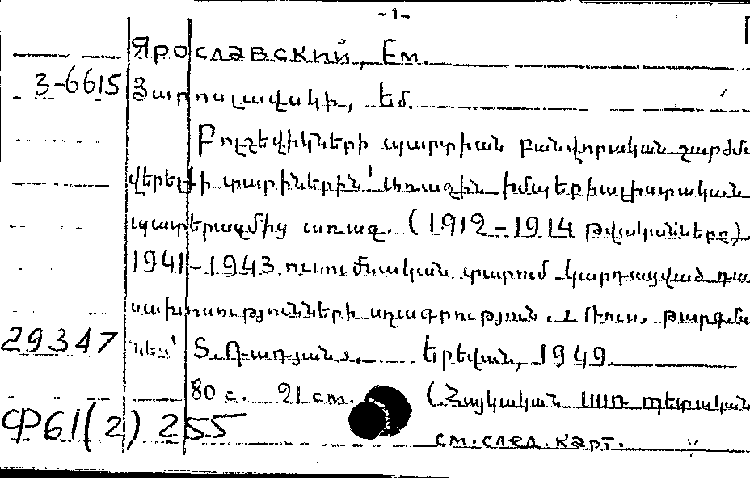 -1-
Ярославский, Ем.
3-6615 Յարոսլավսկի, Եմ.
Բոլշեվիկների պարտիան բանվորական շարժման
վերելքի տարիներին՝ առաջին իմպերիալիստական
պատերազմից առաջ. (1912-1914 թվականները).
1941-1943 ուսումնական տարում կարդացված դա-
սախոսությունների սղագրություն.
29347 Երևան, 1949
80 с. 21 cm. (Հայկական ՍՍՌ պետական
Ф61(2) 255
см. след. карт.